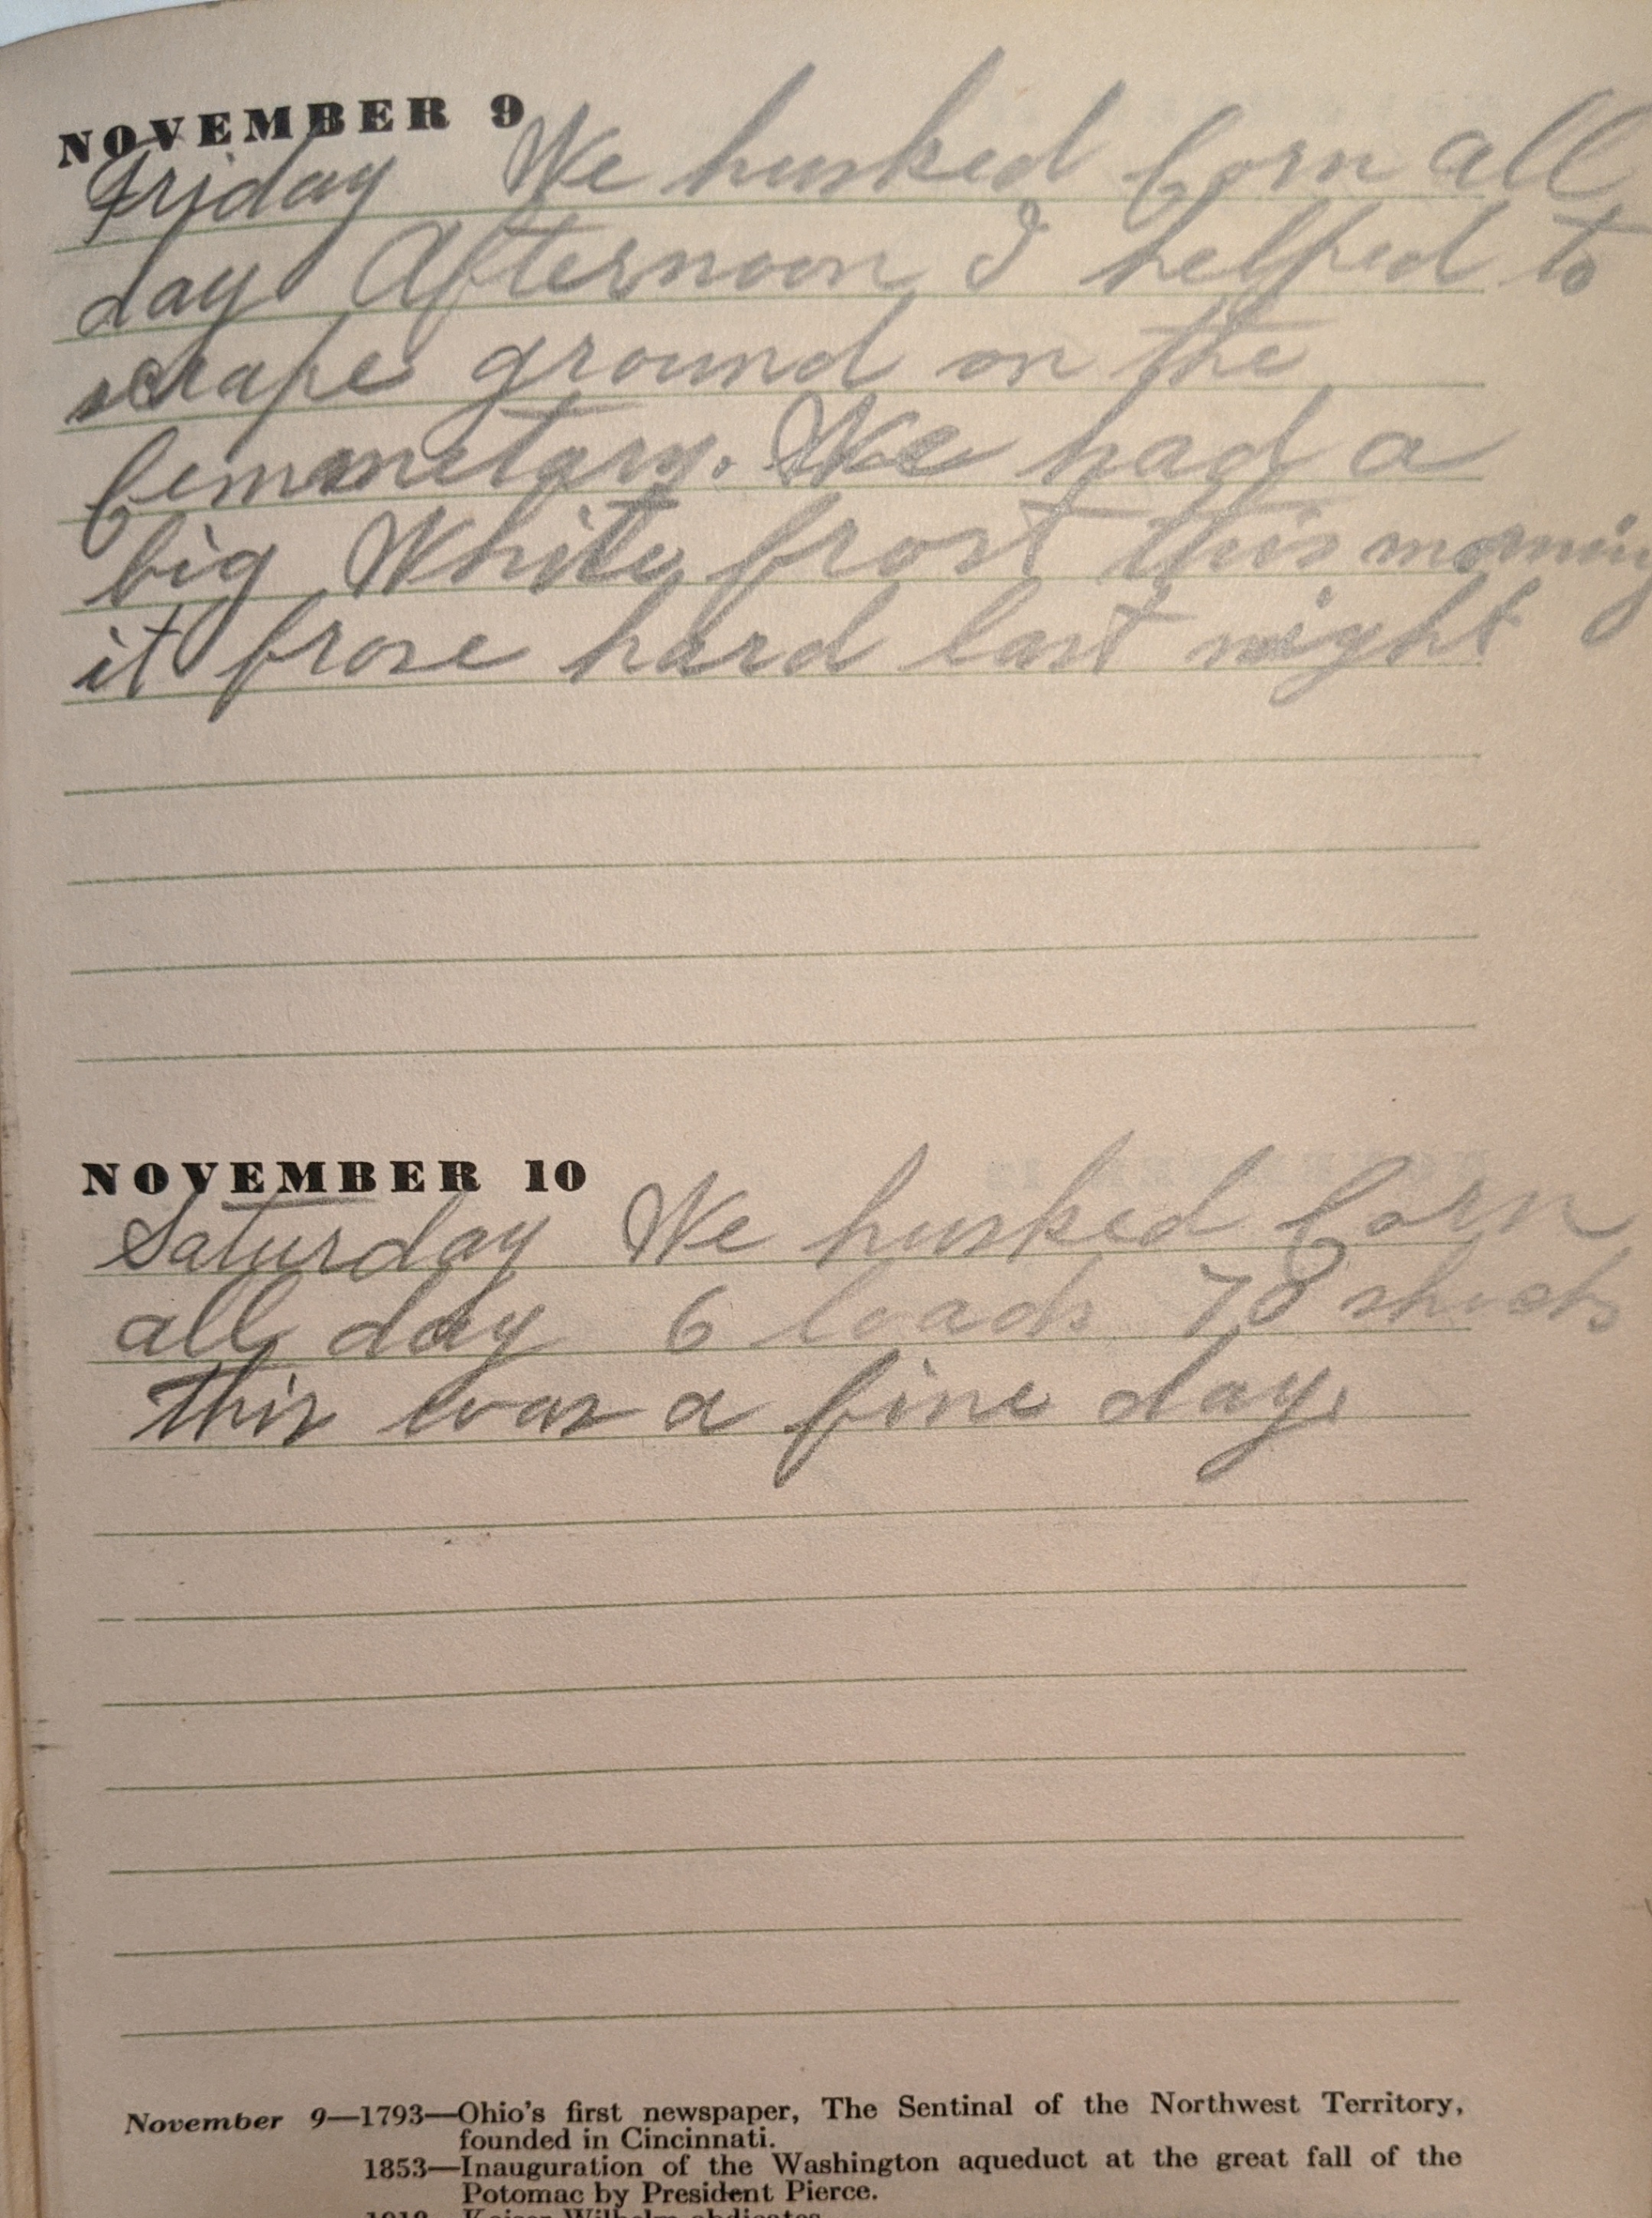 NOVEMBER 9
Friday We husked Corn all
day Afternoon I helped to
scrape ground on the
Cemmetary. We had a
big White frost this morning
it frose hard last night
NOVEMBER 10
Saturday We husked Corn
all day 6 loads 78 shocks
this was a fine day.
November 9—1793—Ohio's first newspaper, The Sentinal of the Northwest Territory,
founded in Cincinnati.
1853—Inauguration of the Washington aqueduct at the great fall of the
Potomac by President Pierce.
1918—Kaiser Wilhelm abdicates.